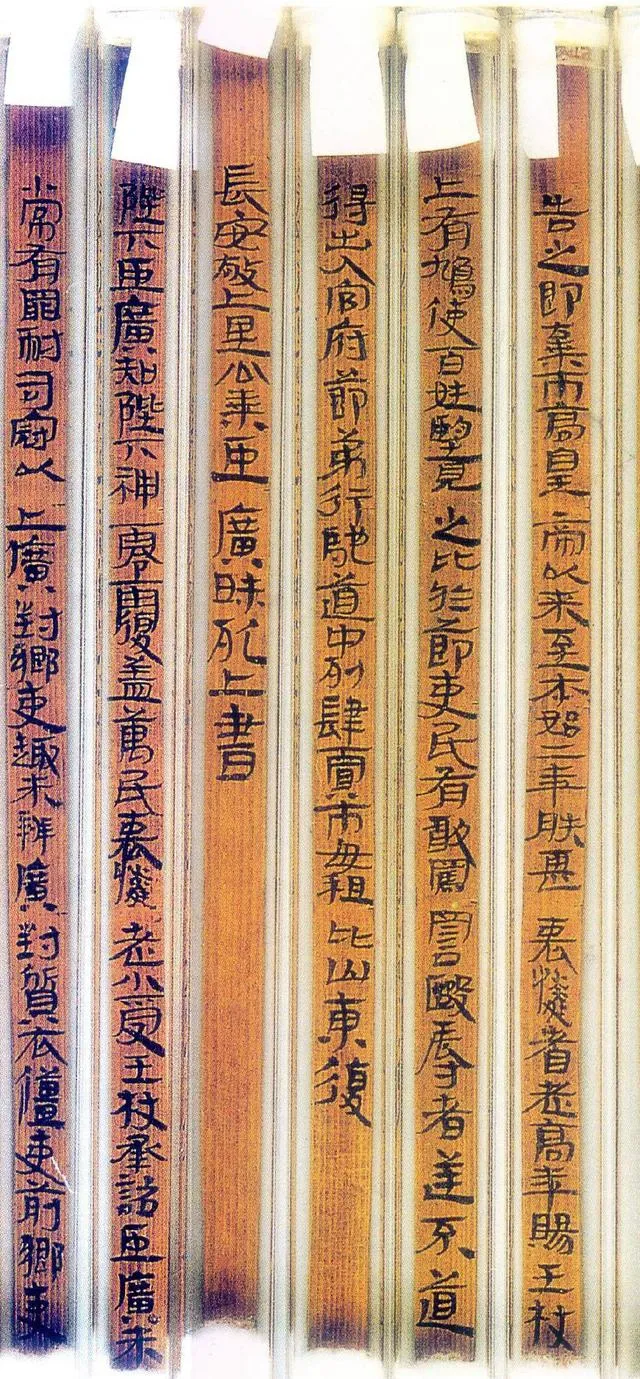 告之即棄市高皇帝以來至本始二年朕甚哀憐耆老高年賜王杖
上有鳩使百姓望見之比於節吏民有敢罵詈毆辱者逆不道
得出入官府節弟行馳道中列肆賈市毋租比山東復
長安敬上里公乘臣廣昧死上書
陛下臣廣知陛下神零覆蓋萬民哀憐老小受王杖承詔臣廣未
常有罪耐司寇以上廣對鄉吏趣未辨廣對質衣僵吏前鄉吏